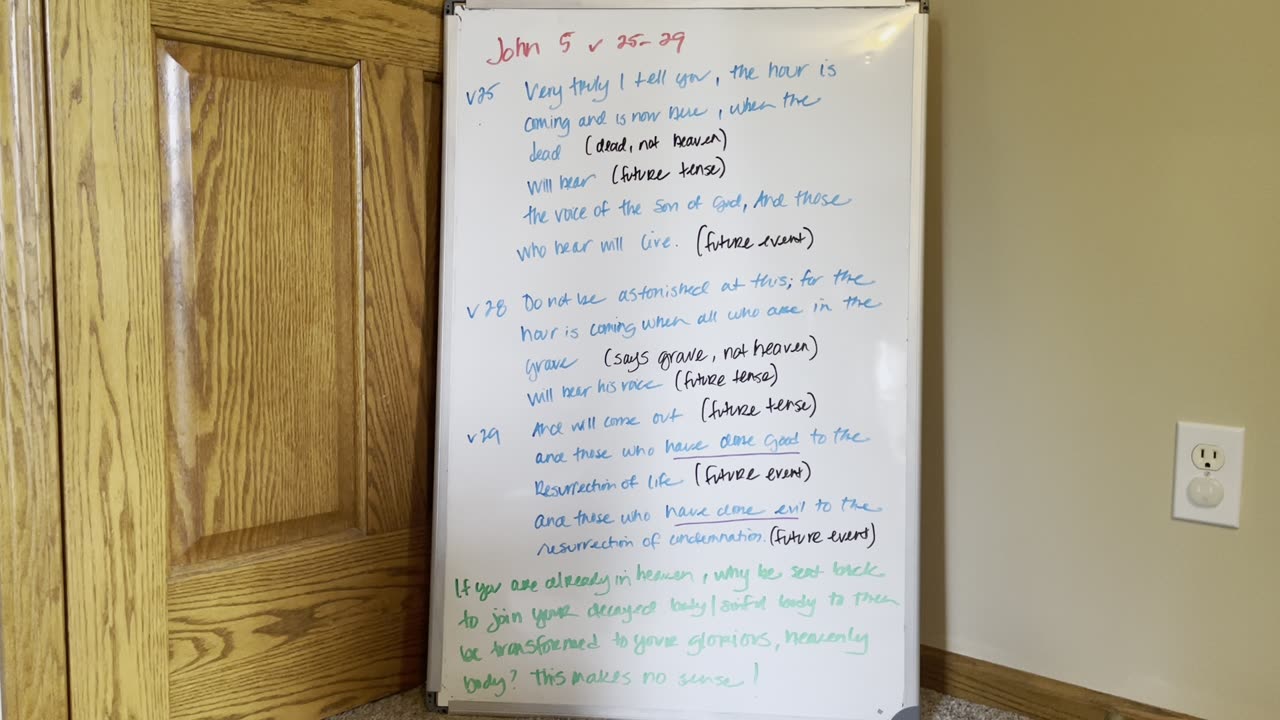 John 5 v 25-29
v25 Very truly I tell you, the hour is
coming and is now here, when the
dead (dead, not heaven)
will hear (future tense)
the voice of the son of God, And those
who hear will live. (future event)
v28 Do not be astonished at this; for the
hour is coming when all who are in the
grave (says grave, not heaven)
will hear his voice (future tense)
v29 And will come out (future tense)
and those who have done good to the
Resurrection of life (future event)
and those who have done evil to the
resurrection of condemnation. (future event)
If you are already in heaven, why be sent back
to join your decayed body/sinful body to then
be transformed to your glorious, heavenly
body? This makes no sense!